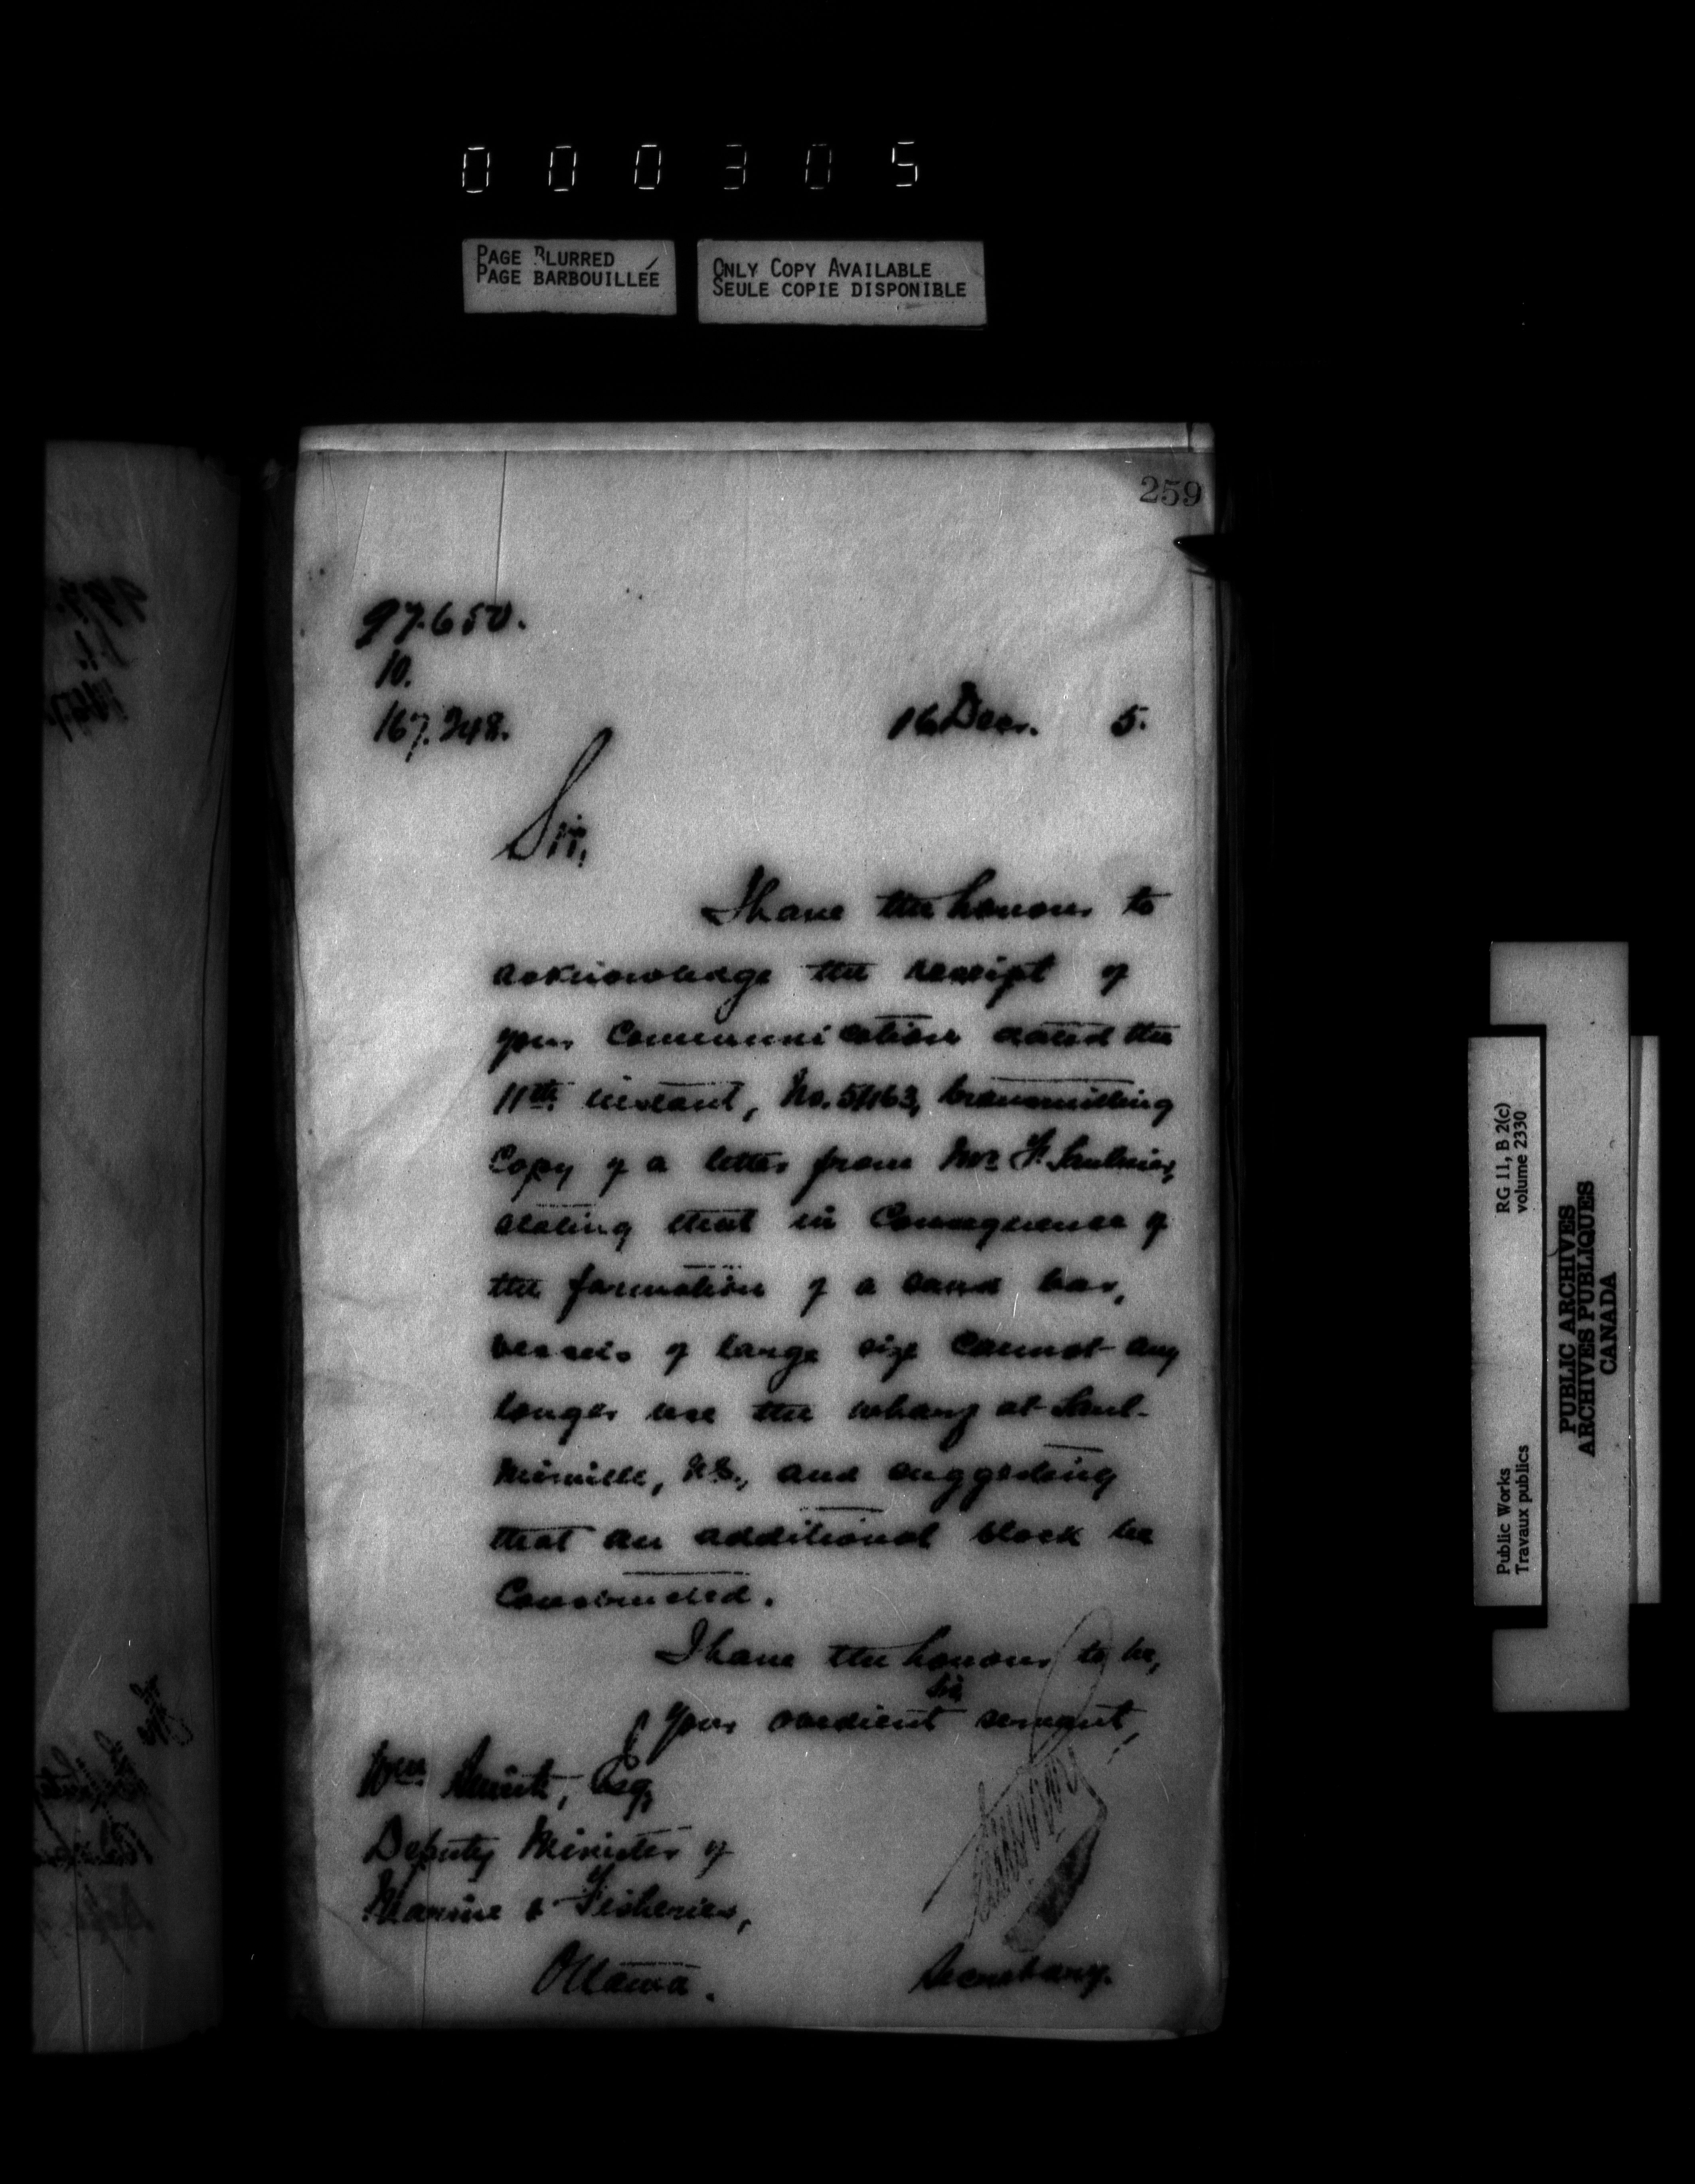 000305
PAGE BLURRED
PAGE BARBOUILLÉE
ONLY COPY AVAILABLE
SEULE COPIE DISPONIBLE
259
97.650.
10.
167.248.
16 Decr. 5.
Sir,
I have the honour to
acknowledge the receipt of
your Communication dated the
11th instant, No. transmitting
Copy of a letter from Mr. F. Saulnier,
stating that in Consequence of
the formation of a sand bar,
vessels of large size Cannot any
longer use the wharf at Saul-
nierville, N.S., and suggesting
that an additional block be
Constructed.
I have the honour to be,
Sir,
Your obedient servant,
Wm Smith, Esq,
Deputy Minister of
Marine & Fisheries,
Ottawa.
Secretary.
Public Works
Travaux publics
RG 11, B 2(c)
volume 2330
PUBLIC ARCHIVES
ARCHIVES PUBLIQUES
CANADA